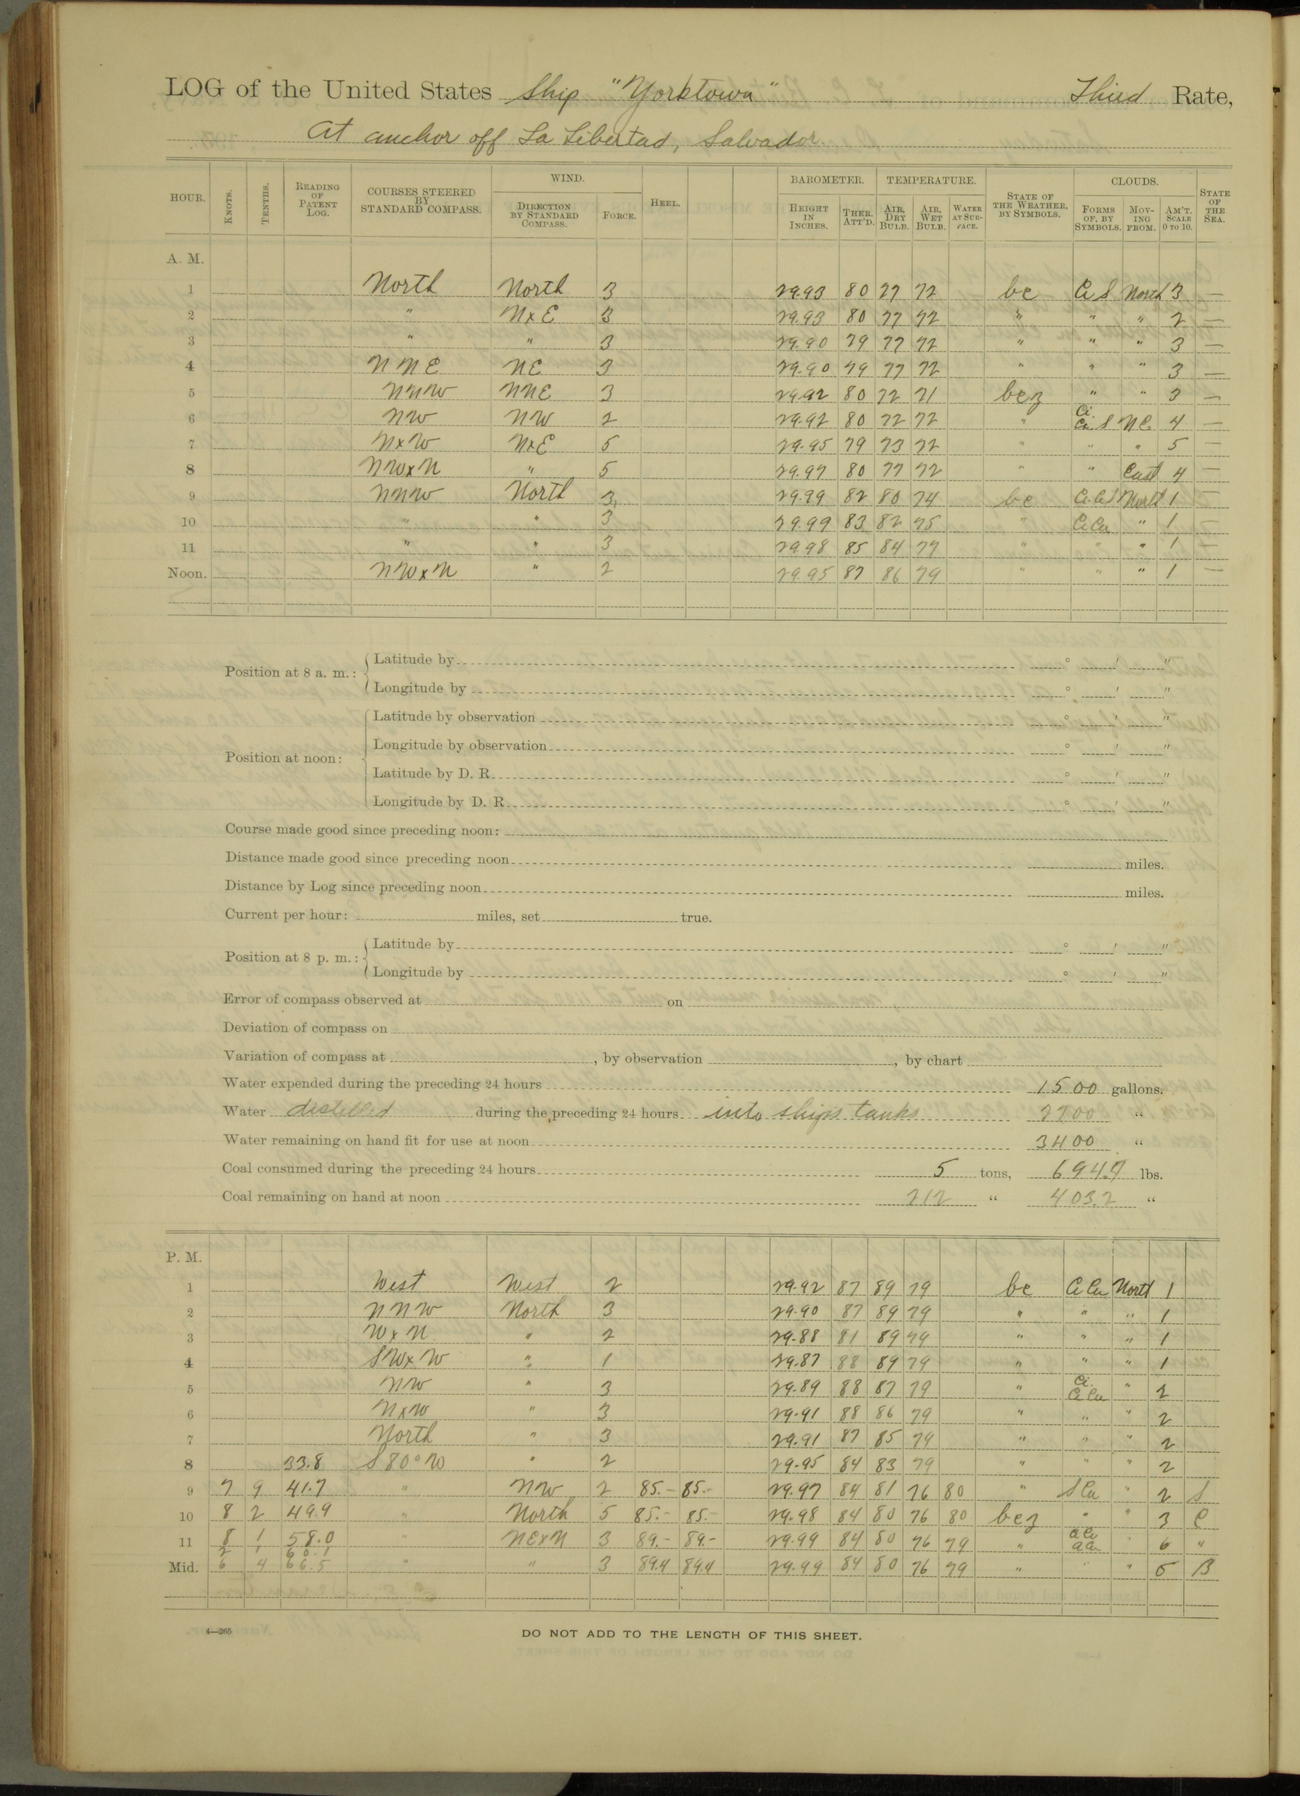 LOG of the United States Ship "Yorktown" Third Rate,
At anchor off La Libertad, Salvador.
HOUR. KNOTS. TENTHS. READING OF PATENT LOG. COURSES STEERED BY STANDARD COMPASS. WIND. DIRECTION BY STANDARD COMPASS. FORCE. HEEL. BAROMETER. HEIGHT IN INCHES. THER. ATT'D. TEMPERATURE. AIR, DRY BULB. AIR, WET BULB. WATER AT SURFACE. STATE OF THE WEATHER, BY SYMBOLS. CLOUDS. FORMS OF, BY SYMBOLS. MOVING FROM. AM'T. SCALE 0 TO 10. STATE OF THE SEA.
A. M.
1 North North 3 29.93 80 77 72 bc Ci S North 3 —
2 " NxE 3 29.93 80 77 72 " " " 2 —
3 " " 3 29.90 79 77 72 " " " 3 —
4 NNE NE 3 29.90 79 77 72 " " " 3 —
5 NNW NNE 3 29.92 80 72 71 bcz " " 3 —
6 NW NW 2 29.92 80 72 72 " Ci. Ci S NE 4 —
7 NxW NxE 5 29.95 79 73 72 " " " 5 —
8 NWxN " 5 29.97 80 77 72 " " East 4 —
9 NNW North 3 29.99 82 80 74 bc Ci.Ci S North 1 —
10 " " 3 29.99 83 82 75 " Ci Cu " 1 —
11 " " 3 29.98 85 84 77 " " " 1 —
Noon. NWxN " 2 29.95 87 86 79 " " " 1 —
Position at 8 a. m.: Latitude by ° ' "
Longitude by ° ' "
Position at noon: Latitude by observation ° ' "
Longitude by observation ° ' "
Latitude by D. R. ° ' "
Longitude by D. R. ° ' "
Course made good since preceding noon:
Distance made good since preceding noon miles.
Distance by Log since preceding noon miles.
Current per hour: miles, set true.
Position at 8 p. m.: Latitude by ° ' "
Longitude by ° ' "
Error of compass observed at on
Deviation of compass on
Variation of compass at , by observation , by chart
Water expended during the preceding 24 hours 1500 gallons.
Water distilled during the preceding 24 hours into ships tanks 2700 "
Water remaining on hand fit for use at noon 3400 "
Coal consumed during the preceding 24 hours 5 tons, 694.7 lbs.
Coal remaining on hand at noon 212 " 403.2 "
P. M.
1 West West 2 29.92 87 89 79 bc Ci Cu North 1
2 NNW North 3 29.90 87 89 79 " " " 1
3 WxN " 2 29.88 81 89 79 " " " 1
4 SWxW " 1 29.87 88 89 79 " " " 1
5 NW " 3 29.89 88 87 79 " Ci. Ci Cu " 2
6 NxW " 3 29.91 88 86 79 " " " 2
7 North " 3 29.91 87 85 79 " " " 2
8 33.8 S 80° W " 2 29.95 84 83 79 " " " 2
9 7 9 41.7 " NW 2 85.- 85.- 29.97 84 81 76 80 " S Cu " 2 S
10 8 2 49.9 " North 5 85.- 85.- 29.98 84 80 76 80 bcz " " 3 C
11 8 1 58.0 " NExN 3 89.- 89.- 29.99 84 80 76 79 " " 6 "
2 1 60.1
Mid. 6 4 66.5 " " 3 89.4 89.4 29.99 84 80 76 79 " " " 5 B
4—265
DO NOT ADD TO THE LENGTH OF THIS SHEET.